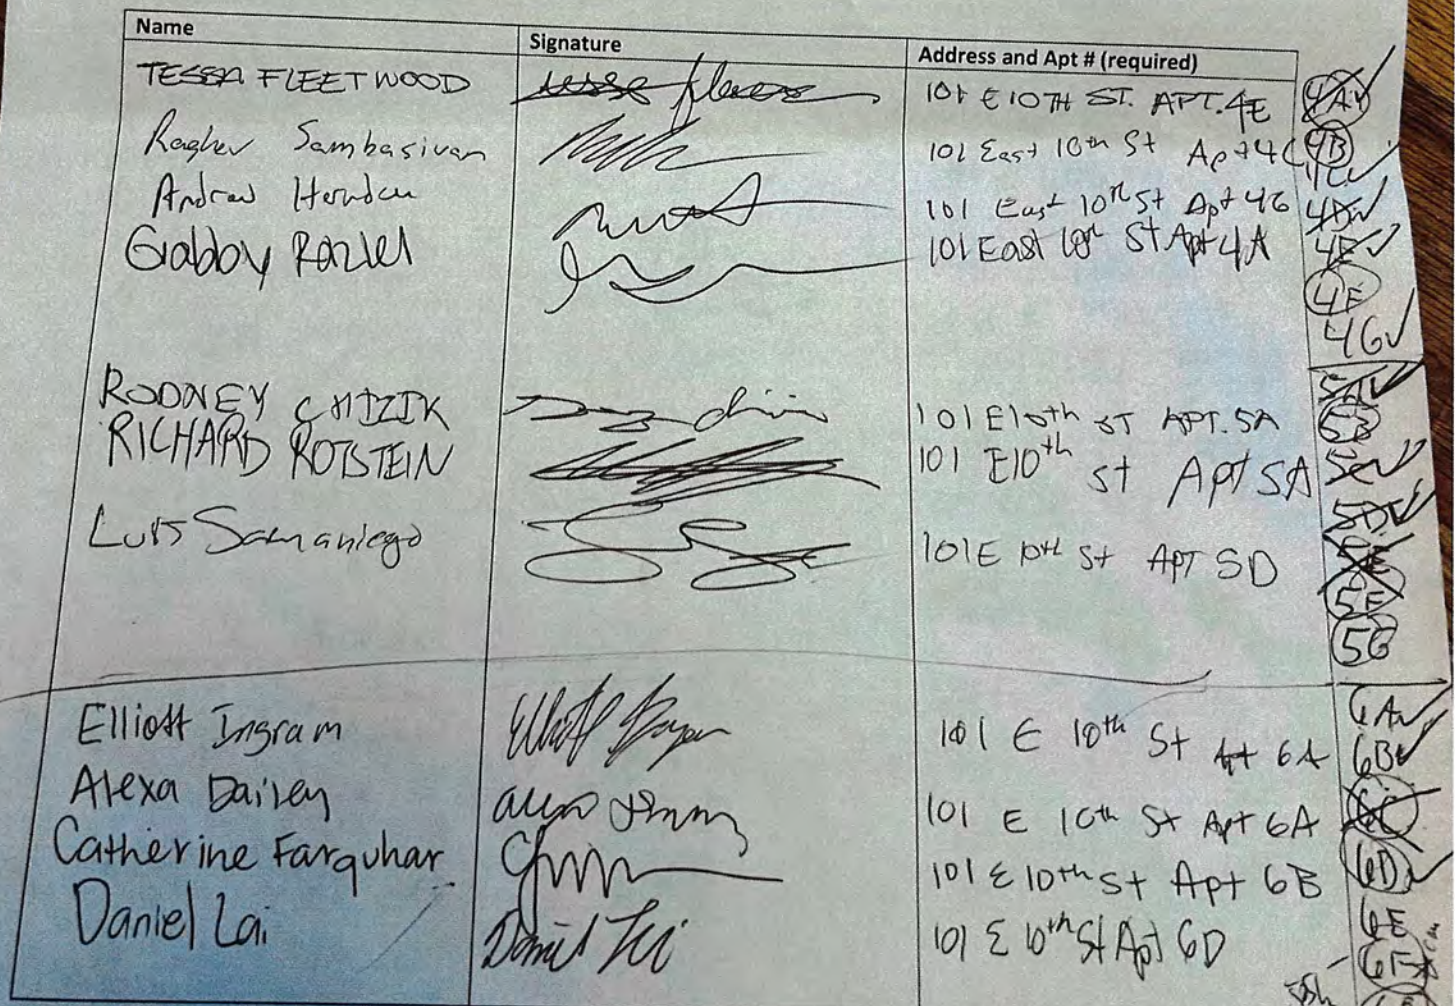 Name Signature Address and Apt # (required)
TESSA FLEETWOOD 101 E 10TH ST. APT. 4E 4A
Raghev Sambasivan 101 East 10th St Apt 4C 4B
4C
Andrew Herndon 101 East 10th St Apt 4G 4D
Gabby Raziel 101 East 10th St Apt 4A 4E
4F
4G
5A
RODNEY CHIZIK 101 E 10th ST APT. 5A 5B
RICHARD ROTSTEIN 101 E10th St Apt 5A 5C
5D
Luis Samaniego 101 E 10th St APT 5D 5E
5F
5G
Elliott Ingram Elliott Ingram 101 E 10th St Apt 6A 6A
6B
Alexa Dailey 101 E 10th St Apt 6A 6C
Catherine Farquhar 101 E 10th St Apt 6B 6D
Daniel Lai Daniel Lai 101 E 10th St Apt 6D 6E
6F